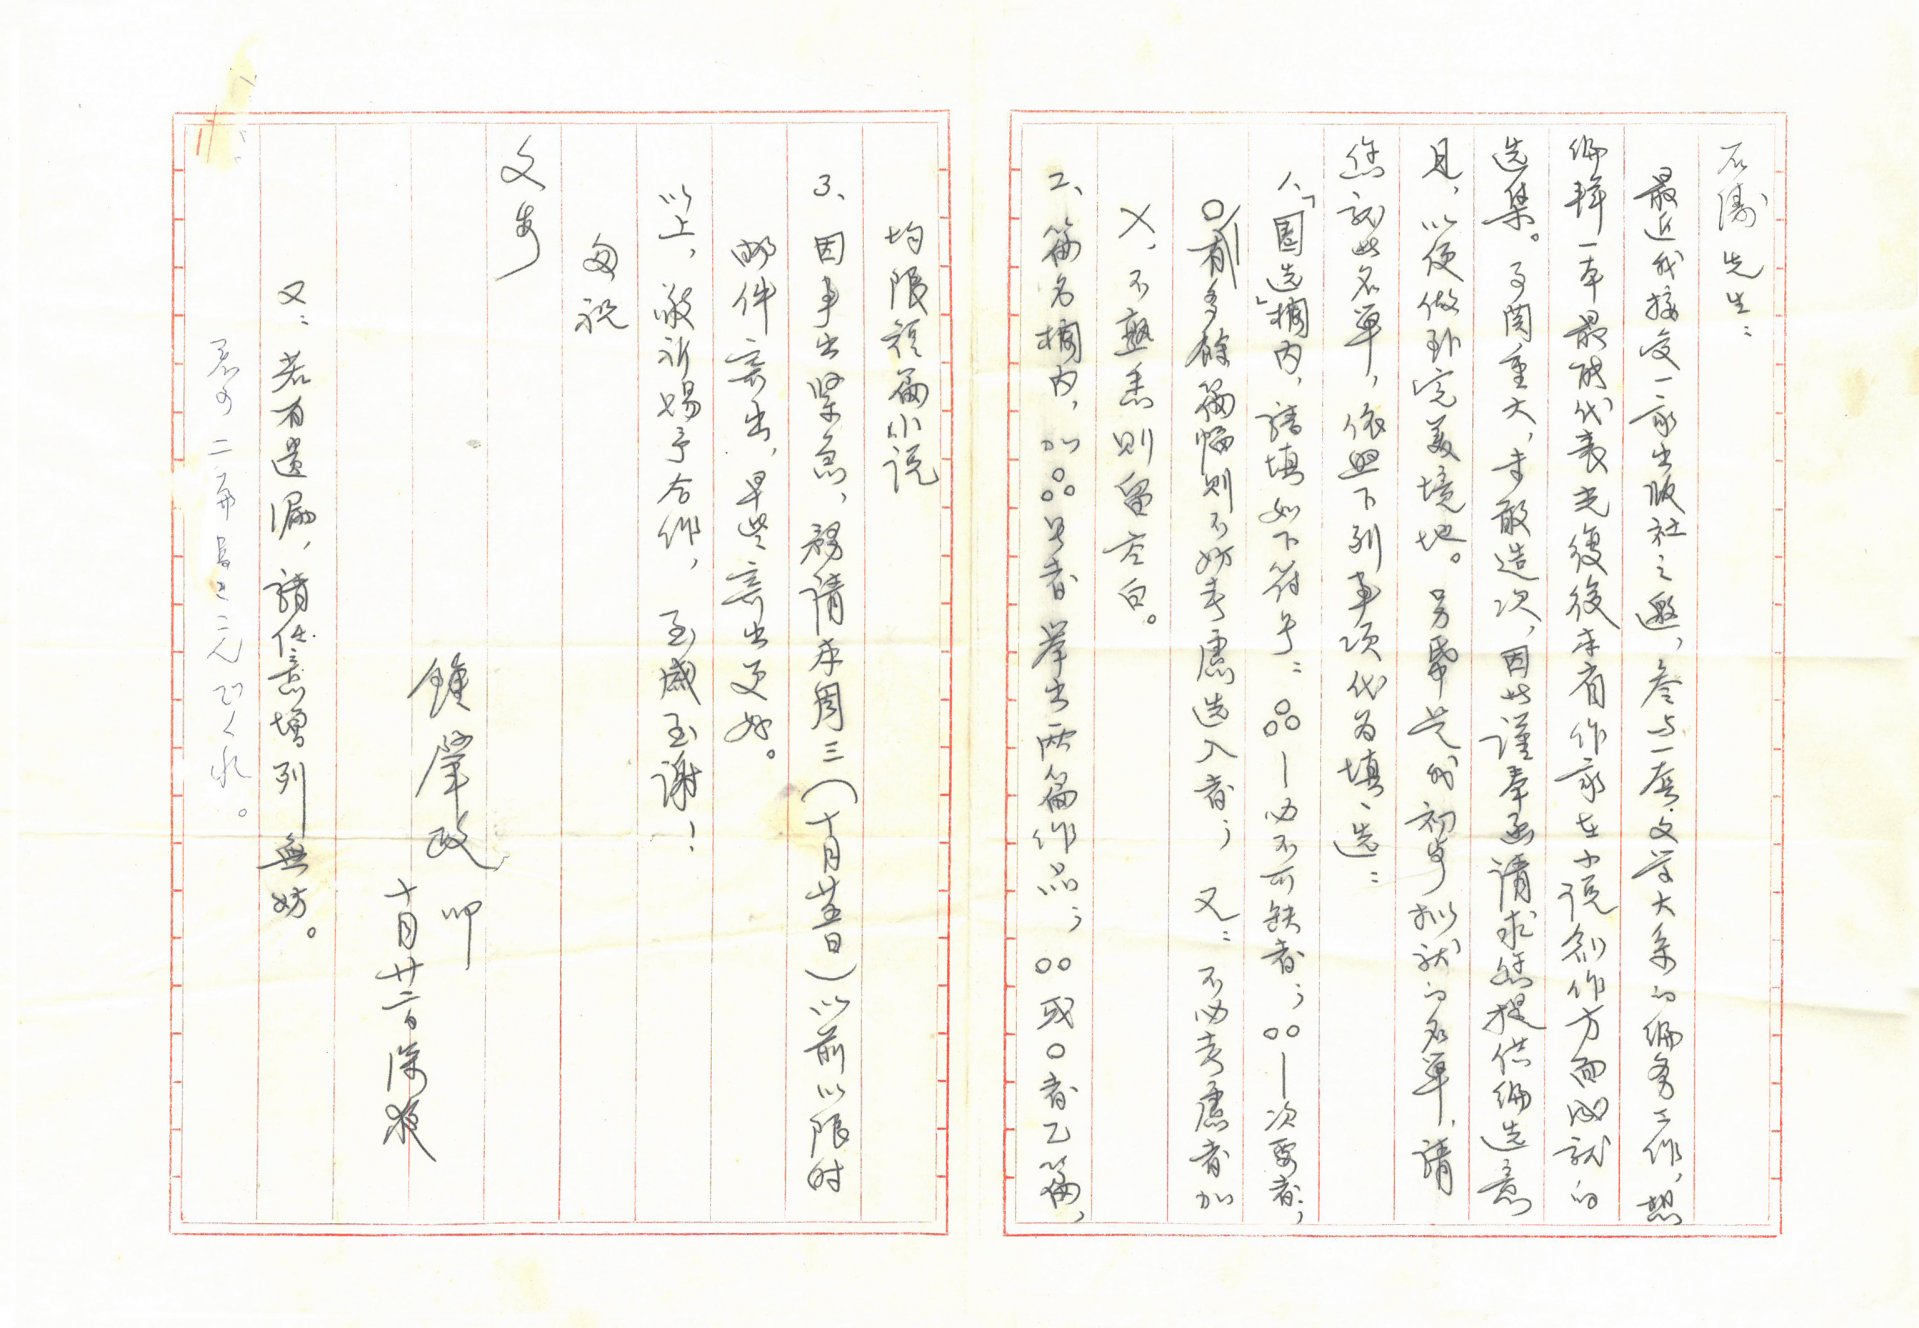 石濤先生：
最近我接受一家出版社之邀，參与一套文学大系的編务工作，想
編輯一本最能代表光復後本省作家在小説創作方面成就的
選集。事関重大，未敢造次，因此谨奉函请求您提供編選意
見，以便做到完美境地。另帋是我初步拟就的名單，請
您就此名單，依照下列事項代为填、選：
1、「圈选」欄内，請填如下符号：ooo—必不可缺者；oo—次要者；
o有多餘篇幅则不妨考慮选入者；又：不必考慮者加
×，不熟悉则留空白。
2、篇名欄内，加ooo号者举出两篇作品；oo或o者乙篇，
均限短篇小说
3、因事出紧急，務请本周三（十月廿五日）以前以限时
郵件寄出，早些寄出更好。
以上，敬祈惕予合作，至感至謝！
匆祝
文安
鍾肇政 叩
十月廿二日深夜
又：若有遗漏，請任意增列無妨。